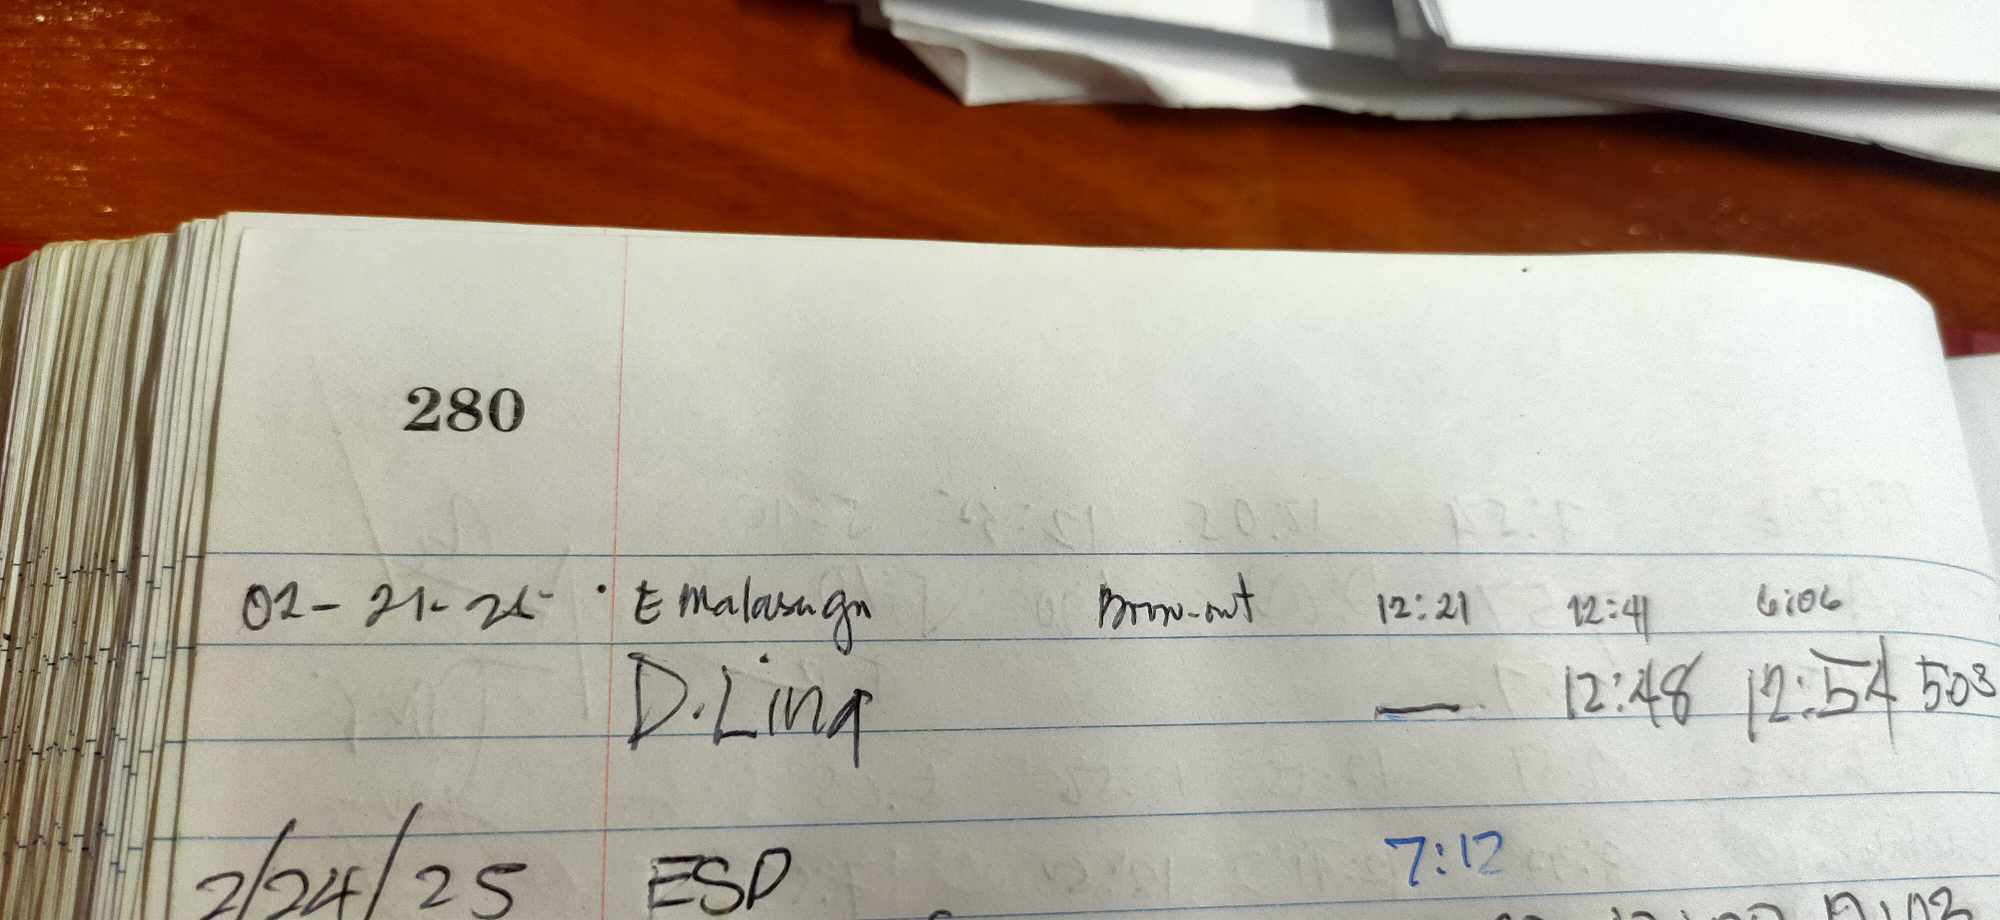 280
02-21-25 · E Malasaga Brow-out 12:21 12:41 6:06
D. Ling — 12:48 12:54 503
2/24/25 ESP 7:12